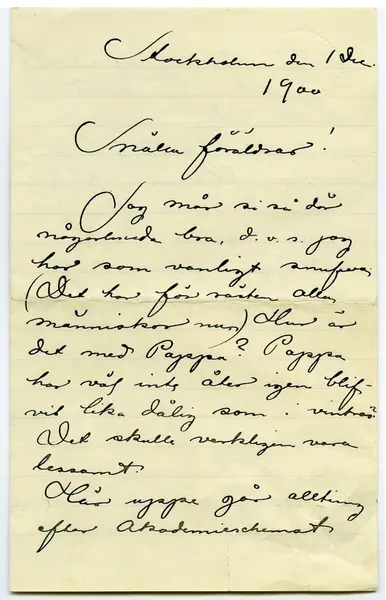 Stockholm den 1 Dec.
1900
Snälla föräldrar!
Jag mår si så där
någorlunda bra, d.v.s. jag
har som vanligt snufva.
(Det har för resten alla
människor nu.) Hur är
det med Pappa? Pappa
har väl inte åter igen blif-
vit lika dålig som i vintras?
Det skulle verkligen vara
ledsamt.
Här uppe går allting
efter Akademieschemat